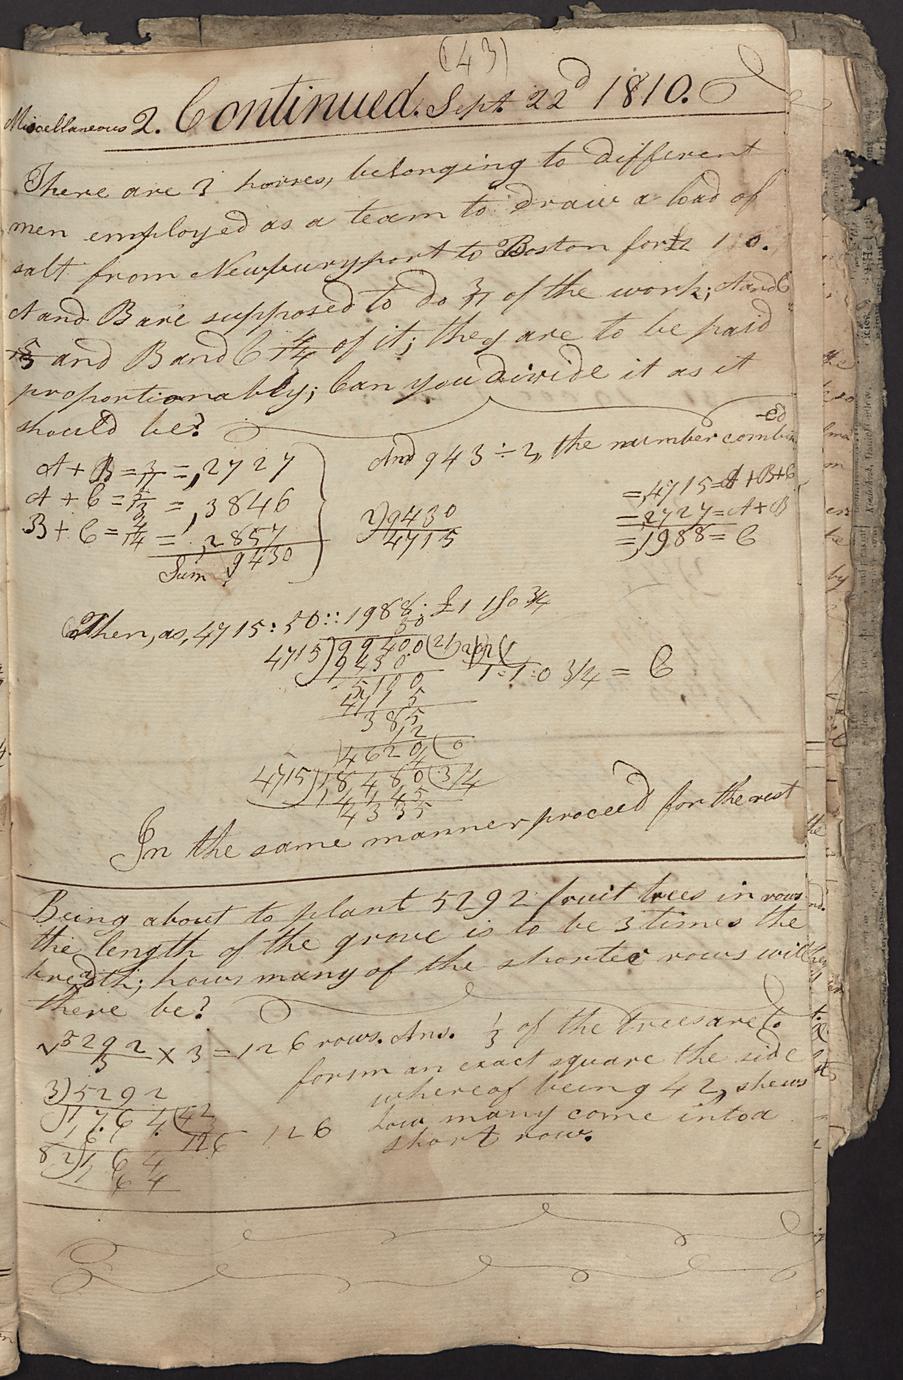 (43)
Miscellaneous 2. Continued. Sept. 22d 1810.
There are 3 horses, belonging to different
men employed as a team to draw a load of
salt from Newburyport to Boston for £2 10.
A and B are supposed to do 3/11 of the work; A and C
5/13 and B and C 4/14 of it; they are to be paid
proportionably; Can you divide it as it
should be?
A + B = 3/11 = ,2727
A + C = 5/13 = ,3846
B + C = 4/14 = ,2857
Sum ,9430
And 943 ÷ 2, the number combin
-ed
2)9430
4715
= ,4715 = A + B + C
= ,2727 = A + B
= ,1988 = C
Then, as, 4715 : 50 :: 1988 : £1 1s 0 3/4
50
4715)99400(21
9430
1 : 1 : 0 3/4 = C
5100
4715
385
12
4620(0
4
4715)18480(3/4
14145
4335
In the same manner proceed for the rest
Being about to plant 5292 fruit trees in rows
the length of the grove is to be 3 times the
breadth; how many of the shorter rows will
there be?
√5292/3 × 3 = 126 rows. Ans. 1/3 of the trees are to
form an exact square the side
whereof being 42, shews
how many come into a
short row.
3)5292
1764(42
16
126 126
82)164
164